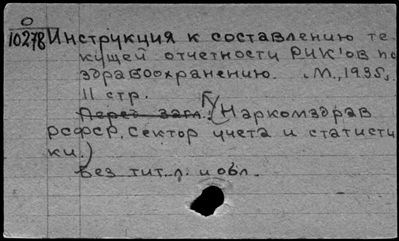 О
10278 Инструкция к составлению те-
кущей отчетности РИК'ов по
здравоохранению. М., 1935.
11 стр.
Перед загл.: (Наркомздрав
РСФСР, Сектор учета и статисти
ки.)
Без тит. л. и обл.